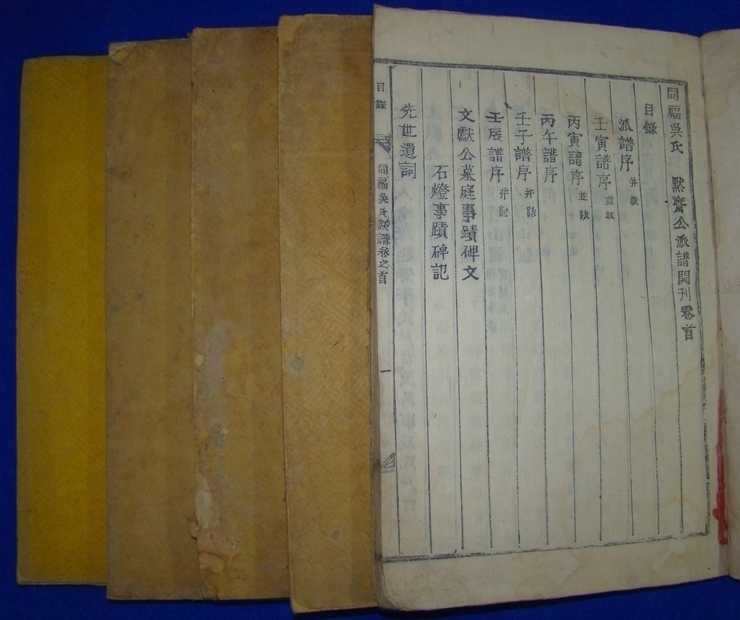 同福吳氏 默齋公派譜開刊卷首
目錄
派譜序 并跋
壬寅譜序 並跋
丙寅譜序 並跋
丙午譜序
壬子譜序 并跋
壬辰譜序 并記
文獻公墓庭事蹟碑文
石燈事蹟碑記
先世遺詞
目錄 同福吳氏族譜卷之首 一